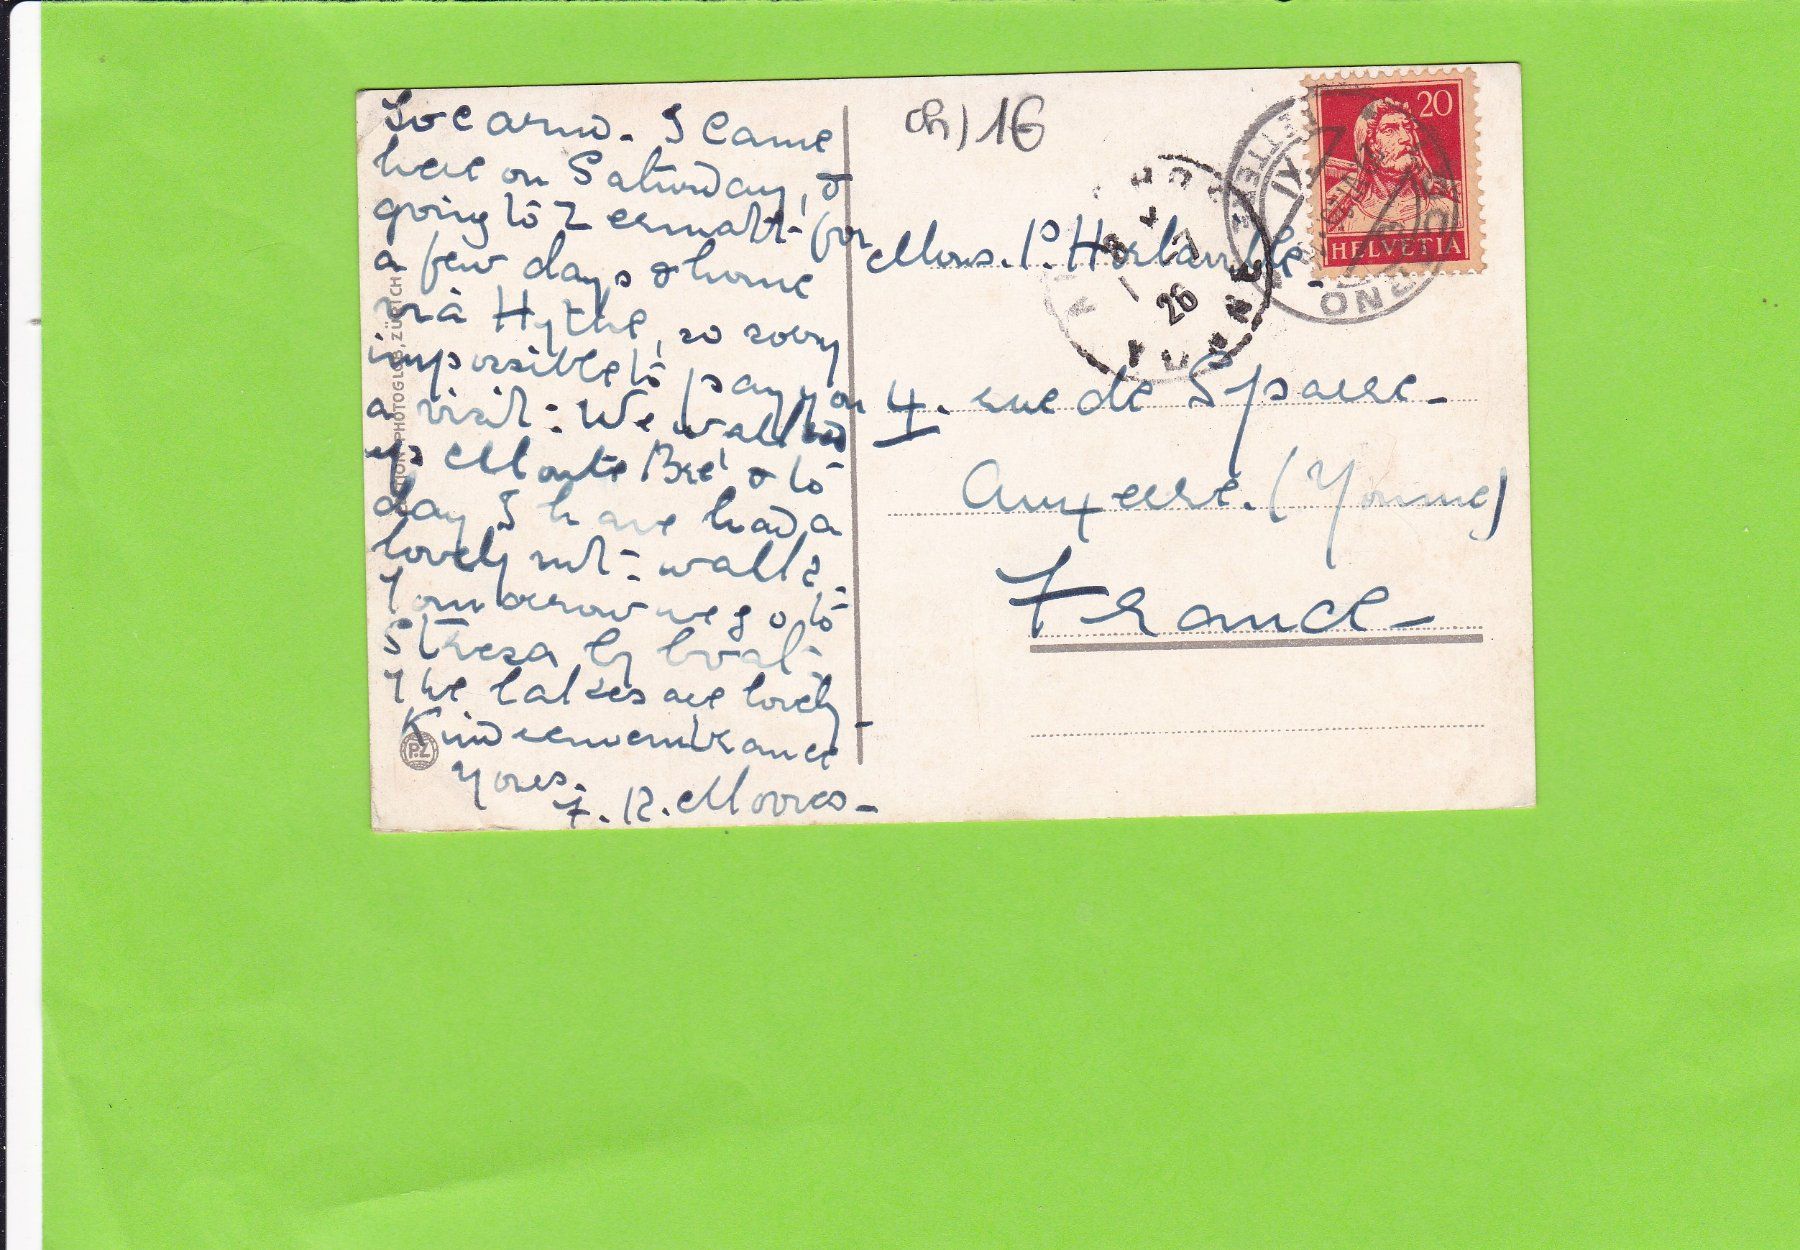 Locarno. I came
here on Saturday, &
going to Zermatt for
a few days & home
via Hythe, so sorry
impossible to pay you
a visit: We walked
up Monte Brè & to
day I have had a
lovely walk.
Tomorrow we go to
Stresa by boat.
The lakes are lovely
Kind remembrance
Yores.
F. R. Moores
PHOTOGLOB, ZÜRICH
P.Z
ch) 16
20
HELVETIA
26
YONNE
Mons. P.
4. rue de Sparre
Auxerre. (Yonne)
France